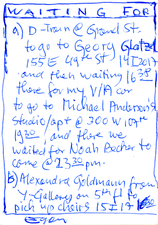 WAITING FOR
a) D-Train @ Grand St.
to go to Georg
155 E 49th St 14 D 2017
and then waiting 16 30
there for my V/A car
to go to Michael Anderson's
studio/apt @ 300 W 107th
19 30 and there we
waited for Noah Becher to
come @ 23 30 pm.
b) Alexandra Goldmann from
Y-Gallery on 5th fl to
pick up chairs 15 I 17